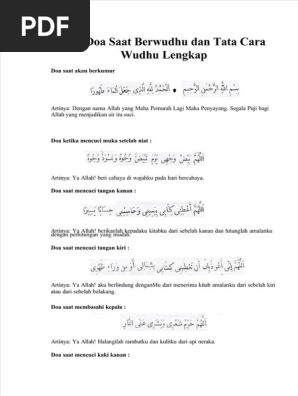 PDF
Doa Saat Berwudhu dan Tata Cara
Wudhu Lengkap
Doa saat akan berkumur
بِسْمِ اللهِ الرَّحْمٰنِ الرَّحِيْمِ • اَلْحَمْدُ لِلّٰهِ الَّذِيْ جَعَلَ الْمَاءَ طَهُوْرًا
Artinya: Dengan nama Allah yang Maha Pemurah Lagi Maha Penyayang. Segala Puji bagi
Allah yang menjadikan air itu suci.
Doa ketika mencuci muka setelah niat :
اَللّٰهُمَّ بَيِّضْ وَجْهِيْ يَوْمَ تَبْيَضُّ وُجُوْهٌ وَتَسْوَدُّ وُجُوْهٌ
Artinya: Ya Allah! beri cahaya di wajahku pada hari bercahaya.
Doa saat mencuci tangan kanan :
اَللّٰهُمَّ أَعْطِنِيْ كِتَابِيْ بِيَمِيْنِيْ وَحَاسِبْنِيْ حِسَابًا يَسِيْرًا
Artinya: Ya Allah! berikanlah kepadaku kitabku dari sebelah kanan dan hitunglah amalanku
dengan perhitungan yang mudah.
Doa saat mencuci tangan kiri :
اَللّٰهُمَّ إِنِّيْ أَعُوْذُ بِكَ أَنْ تُعْطِيَنِيْ كِتَابِيْ بِشِمَالِيْ أَوْ مِنْ وَرَاءِ ظَهْرِيْ
Artinya: Ya Allah! aku berlindung denganMu dari menerima kitab amalanku dari sebelah kiri
atau dari sebelah belakang.
Doa saat membasahi kepala :
اَللّٰهُمَّ حَرِّمْ شَعْرِيْ وَبَشَرِيْ عَلَى النَّارِ
Artinya: Ya Allah! Halangilah rambutku dan kulitku dari api neraka.
Doa saat mencuci kaki kanan :